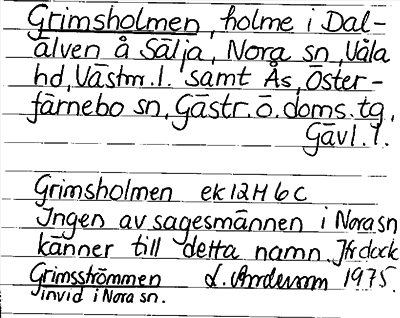 Grimsholmen, holme i Dal-
älven å Sälja, Nora sn, Våla
hd, Västm. l. samt Ås, Öster-
färnebo sn, Gästr. ö. doms. tg,
Gävl. l.
Grimsholmen ek 12H 6c
Ingen av sagesmännen i Nora sn
känner till detta namn. Jfr dock
Grimsströmmen L. Andersson 1975.
invid i Nora sn.